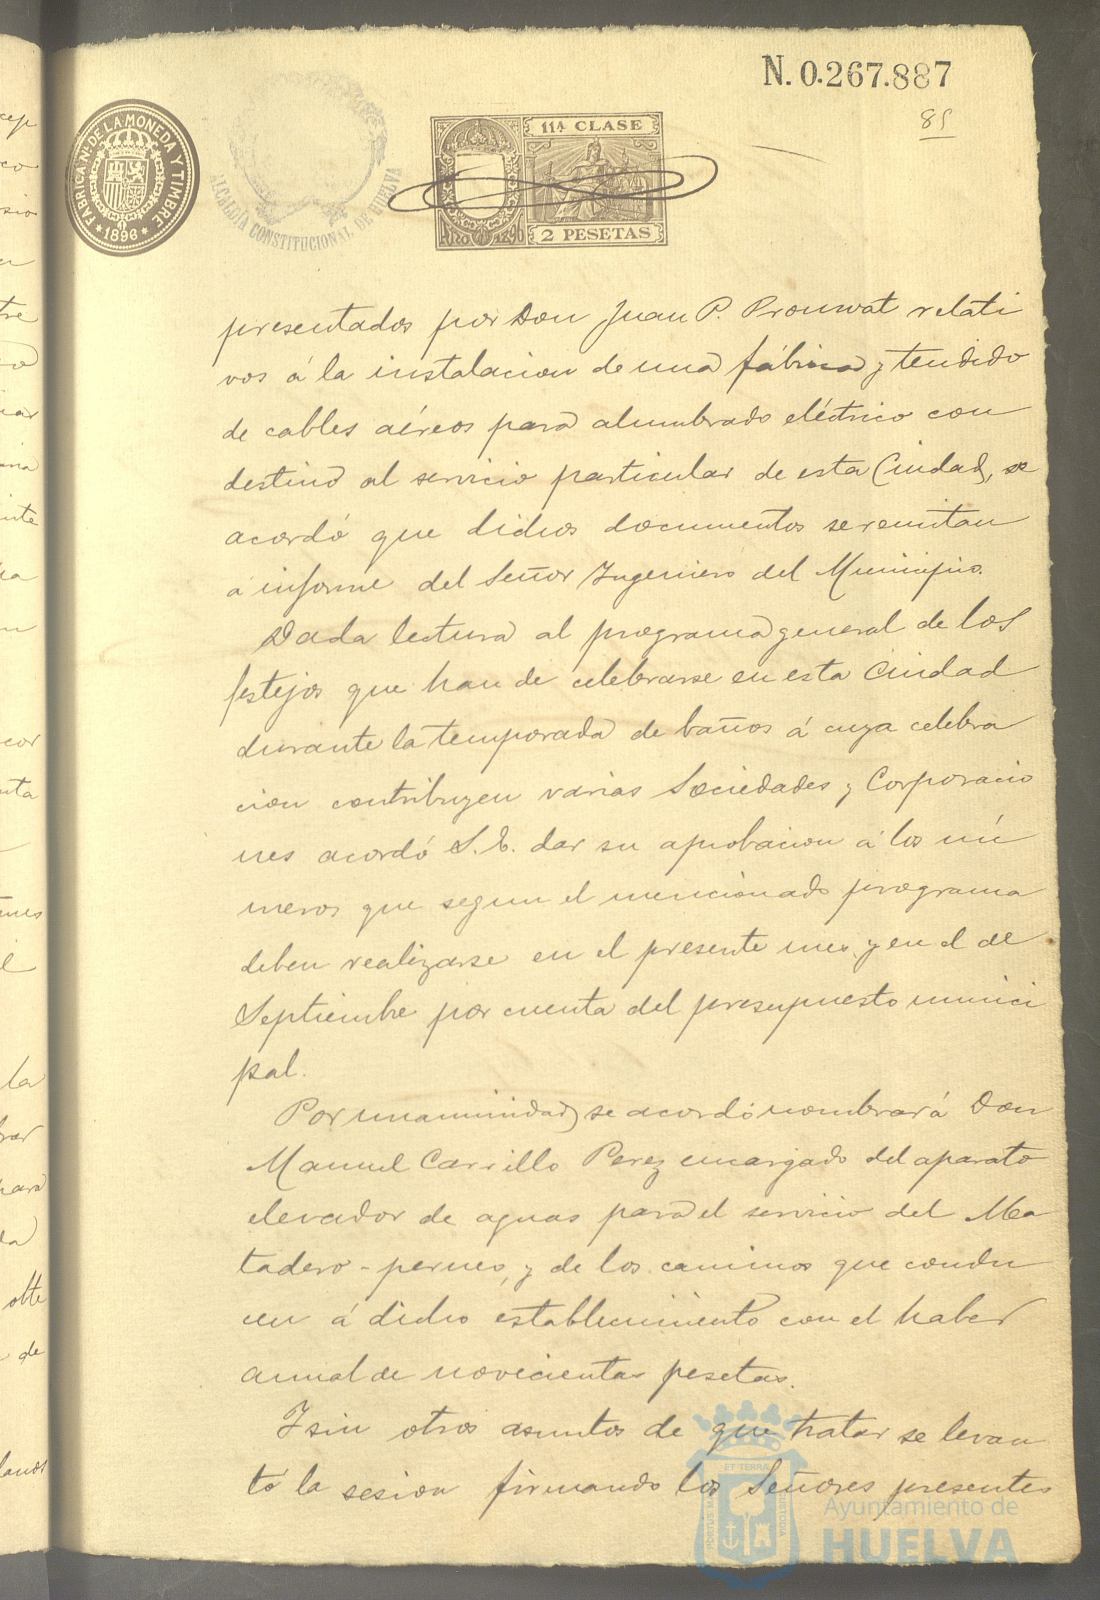 N. 0.267.887
85
FÁBRICA Nal DE LA MONEDA Y TIMBRE
* 1896 *
ALCALDÍA CONSTITUCIONAL DE HUELVA
11ª CLASE
2 PESETAS
presentados por Don Juan P. relati
vos á la instalacion de una fábrica y tendido
de cables aéreos para alumbrado eléctrico con
destino al servicio particular de esta Ciudad, se
acordó que dichos documentos se remitan
á informe del Señor Ingeniero del Municipio.
Dada lectura al programa general de los
festejos que han de celebrarse en esta Ciudad
durante la temporada de baños á cuya celebra
cion contribuyen varias Sociedades y Corporacio
nes acordó S. E. dar su aprobacion á los nú
meros que segun el mencionado programa
deben realizarse en el presente mes y en el de
Septiembre por cuenta del presupuesto munici
pal.
Por unanimidad se acordó nombrar á Don
Manuel Carrillo Perez encargado del aparato
elevador de aguas para el servicio del Ma
tadero - y de los caminos que condu
cen á dicho establecimiento con el haber
anual de novecientas pesetas.
Y sin otros asuntos de que tratar se levan
tó la sesion firmando los Señores presentes
Ayuntamiento de
HUELVA